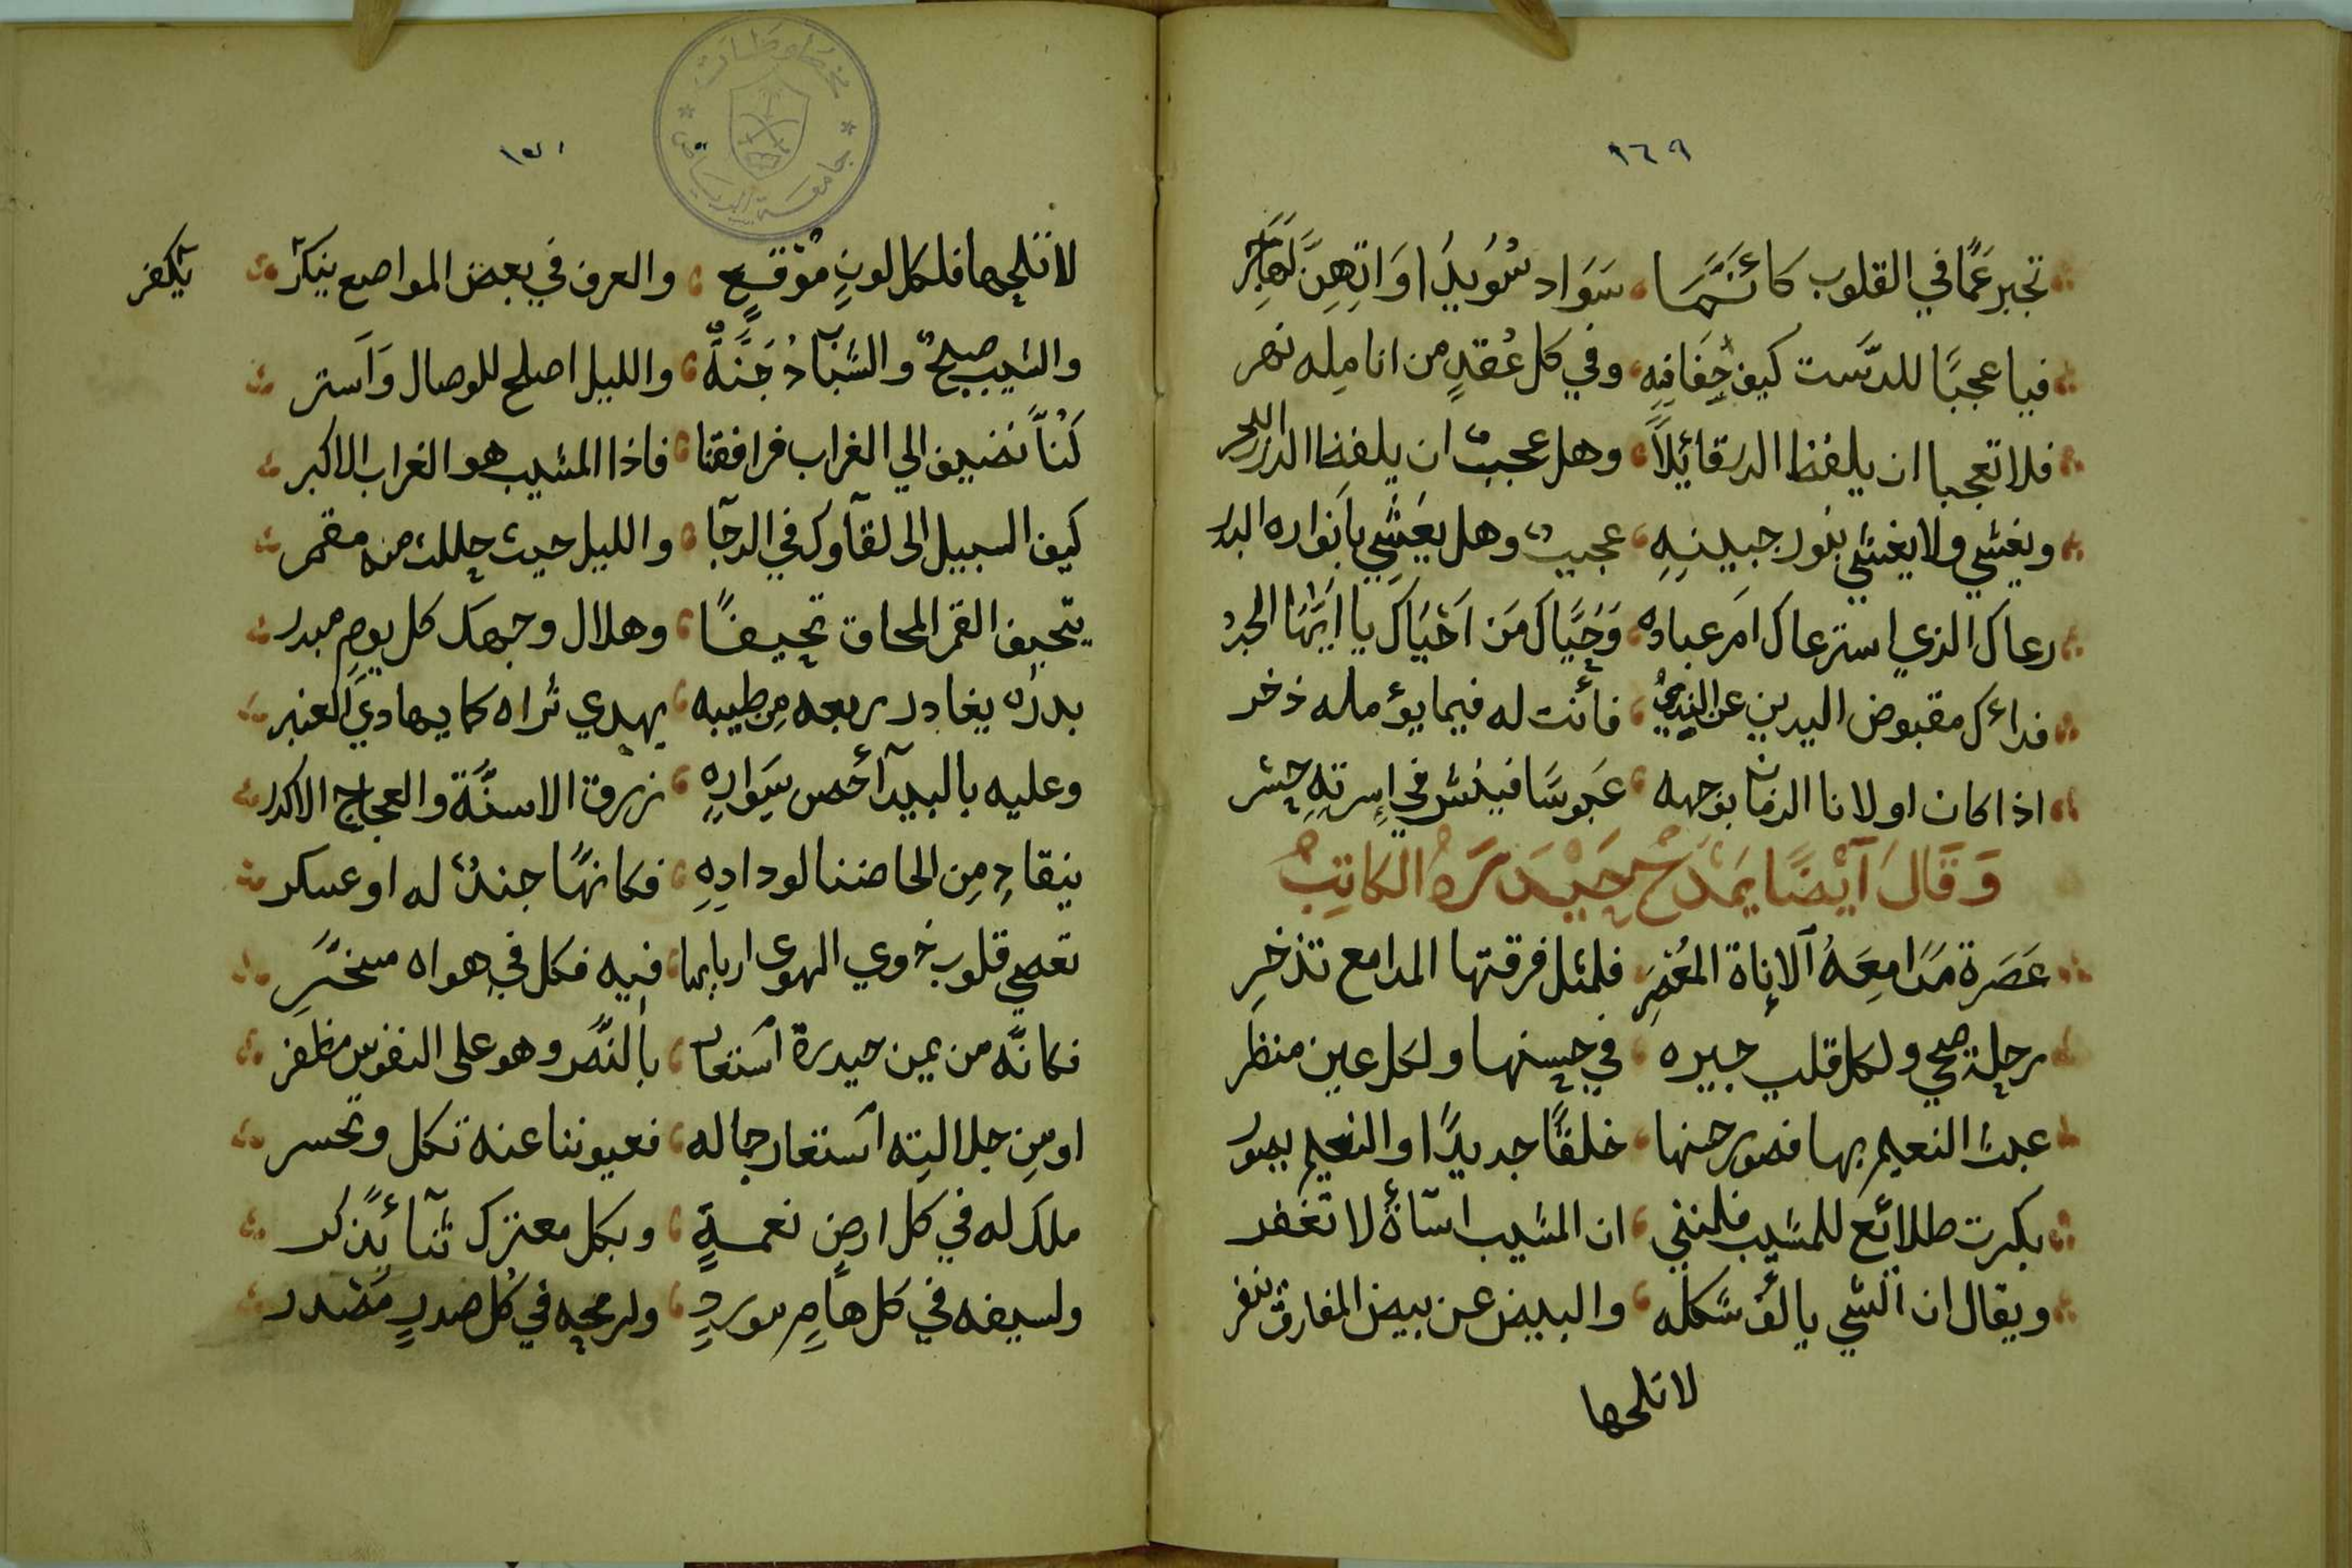 ١٦٩
تخبر عمّا في القلوب كأنّما سَوَاد سُوَيدَاوَاتِهِنَّ لَهَا حِبْرُ
فيا عجبًا للدَّست كيف جفافيه وفي كل عُقدٍ من انامله نهر
فلا تعجبا ان يلفظ الدر قائلاً وهل عجبٌ ان يلفظ الدرر البحر
ويغشي ولا يغشي بنور جبينِهِ عجيبٌ وهل يَغشي بأنواره البدر
رعاك الذي استرعاك امر عباده وَحَيَّاكَ مَن اَحْيَاكَ يا اَيّهَا الحبرُ
فداؤك مقبوض اليدين عن الندي فأنت له فيما يؤمله ذخر
اذا كان اولانا الزمان بوجهه عَبوسًا فينشر في اسرتِهِ بشر
وَقَالَ اَيْضًا يَمْدَحُ حَيْدَرَةُ الكَاتِبُ
عَصَرة مَدَامِعَهُ الاناة المُعْصِرَ فلمثل فرقتها المدامع تذخرِ
رحلة ضحي ولكل قلب جيره في حسنها ولكل عين منظر
عبث النعيم بها فصور حسنها خلقًا جديدًا والنعيم يصور
بكرت طلائع للمشيب فلمنني ان المشيب اسآءةٌ لا تغفر
ويقال ان الشي يالف شكله والبيض عن بيض المفارق تنفر
لا تلحها
١٧٠
لا تلحها فلكل لونٍ مَوْقعٍ والعرف في بعض المواضع ينكر
يكفر
والشيب صبحٌ والشبابُ دُجنَّةٌ والليل اصلح للوصال وَاَستر
كُنّا نضيف الي الغراب فراقنا فاذا المشيب هو الغراب الاكبر
كيف السبيل الى لقآوك في الدجا والليل حيث حللت منه مقمر
يتحيف القمر المحاق تحيفًا وهلال وجهك كل يومٍ مبدر
بدرٌ يغادر ربعه مِن طيبه يهدي ثراه كما يهادي العنبر
وعليه بالبيدآ أخص سِوَارهِ زرق الاسنَّة والعجاج الاكدر
ينقادِ مِن الحاضنا لودادِهِ فكانها جندٌ له او عسكر
تعصي قلوب ذوي الهوى اربابها فيه فكل في هواه مسخّرِ
فكانّه من يمن حيدرة استعار بالنّصر وهو على النفوس مظفر
او مِن جلالتِه استعار جماله فعيوننا عنه تكل وتحسر
ملك له في كل ارض نعمةٍ وبكل معترك ثنآءٌ يذكر
ولسيفه في كل هامٍ موردٍ ولرمحه في كل صدرٍ مَصْدر